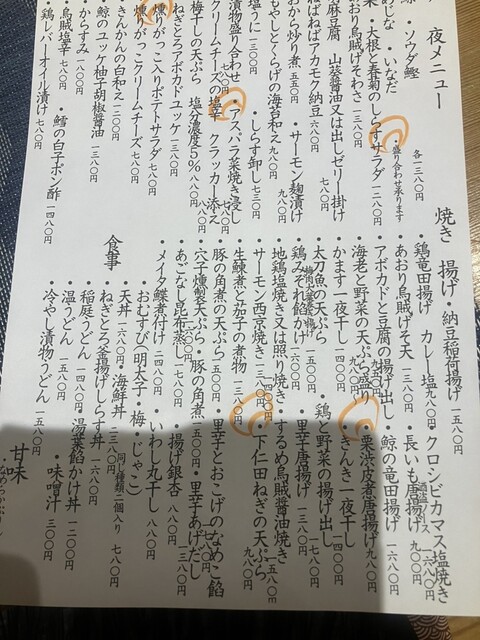 夜メニュー
ソウダ鰹
・いなだ 各一三八〇円
・盛り合わせ承ります
・大根と春菊のしらすサラダ 一二八〇円
おり烏賊げそわさ 一三八〇円
麻豆腐 山葵醤油又は出しゼリー掛け 七八〇円
ねばねばアカモク納豆 六八〇円
もやしとくらげの海苔和え 九八〇円
おから炒り煮 五八〇円 ・サーモン麹漬け 九八〇円
塩うに 一三〇〇円 ・しらす卸し 七三〇円
漬物盛り合わせ ・アスパラ菜焼き浸し 七八〇円
クリームチーズの塩辛 クラッカー添え 八八〇円
梅干しの天ぷら 塩分濃度5% 八八〇円
ねぎとろアボカドユッケ 一三八〇円
燻りがっこ入りポテトサラダ 七八〇円
燻りがっこクリームチーズ 七八〇円
きんかんの白和え 一二〇〇円
・鯨のユッケ柚子胡椒醤油 一三八〇円
・からすみ 一三八〇円
・烏賊塩辛 七八〇円 ・鱈の白子ポン酢 一四八〇円
・鶏レバーオイル漬け 七八〇円
焼き 揚げ
・納豆稲荷揚げ 一五八〇円
・鶏竜田揚げ カレー塩 九八〇円
・クロシビカマス塩焼き 一六八〇円
・あおり烏賊げそ天 一三八〇円
・長いも唐揚げ 九八〇円
・アボカドと豆腐の揚げ出し 九八〇円
・鯨の竜田揚げ 一六八〇円
・海老と野菜の天ぷら盛り
・栗渋皮煮唐揚げ 九八〇円
・かます一夜干し 一四〇〇円
・きんき一夜干し 四〇〇〇円
・太刀魚の天ぷら
・鶏と野菜の揚げ出し 一三八〇円
・鶏みぞれ餡かけ 一五〇〇円
・里芋唐揚げ 一七八〇円
・地鶏塩焼き又は照り焼き
・するめ烏賊醤油焼き 一五八〇円
・サーモン西京焼き 一三八〇円
・下仁田ねぎの天ぷら 九八〇円
・生鰊煮と茄子の煮物 一三八〇円
・豚の角煮の天ぷら 一五〇〇円
・里芋とおこげのなめこ餡 一七八〇円
・穴子燻製天ぷら ・豚の角煮 一五〇〇円
・里芋あげだし
・あごなし昆布蒸し 一七八〇円
・揚げ銀杏 八八〇円
・メイタ鰈煮付け 二四八〇円
・いわし丸干し 八八〇円
食事
・おむすび(明太子・梅・じゃこ) 同じ種類二個入り 七八〇円
・天丼 一六八〇円 ・海鮮丼 二三八〇円
・ねぎとろ釜揚げしらす丼 一六八〇円
・稲庭うどん 一四八〇円 ・湯葉餡かけ丼 一二〇〇円
・温うどん 一五八〇円 ・味噌汁 三〇〇円
・冷やし漬物うどん 一五八〇円
甘味